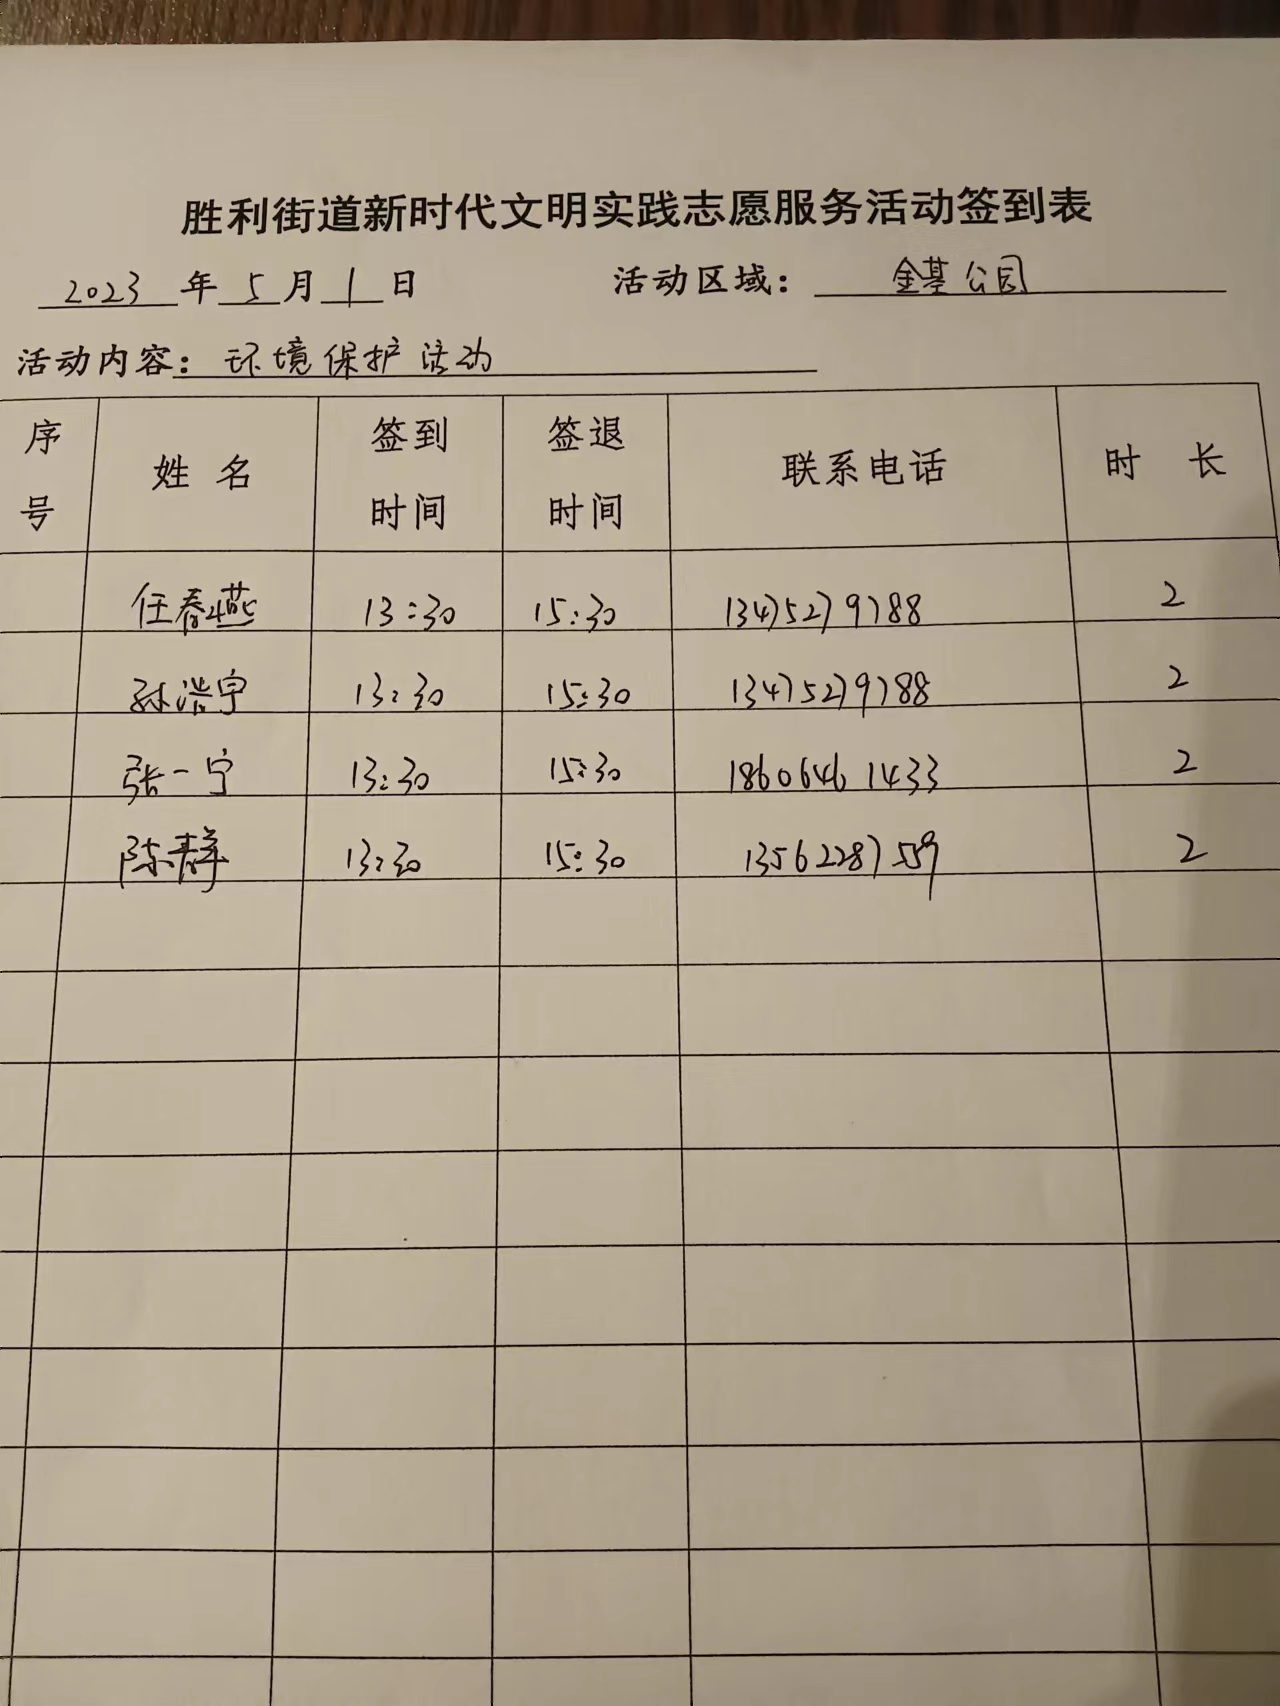 胜利街道新时代文明实践志愿服务活动签到表
2023 年 5 月 1 日 活动区域： 金基公园
活动内容： 环境保护活动
序号 姓名 签到时间 签退时间 联系电话 时长
任春燕 13:30 15:30 13475279788 2
孙浩宇 13:30 15:30 13475279788 2
张一宁 13:30 15:30 18606461433 2
陈静 13:30 15:30 13562287559 2